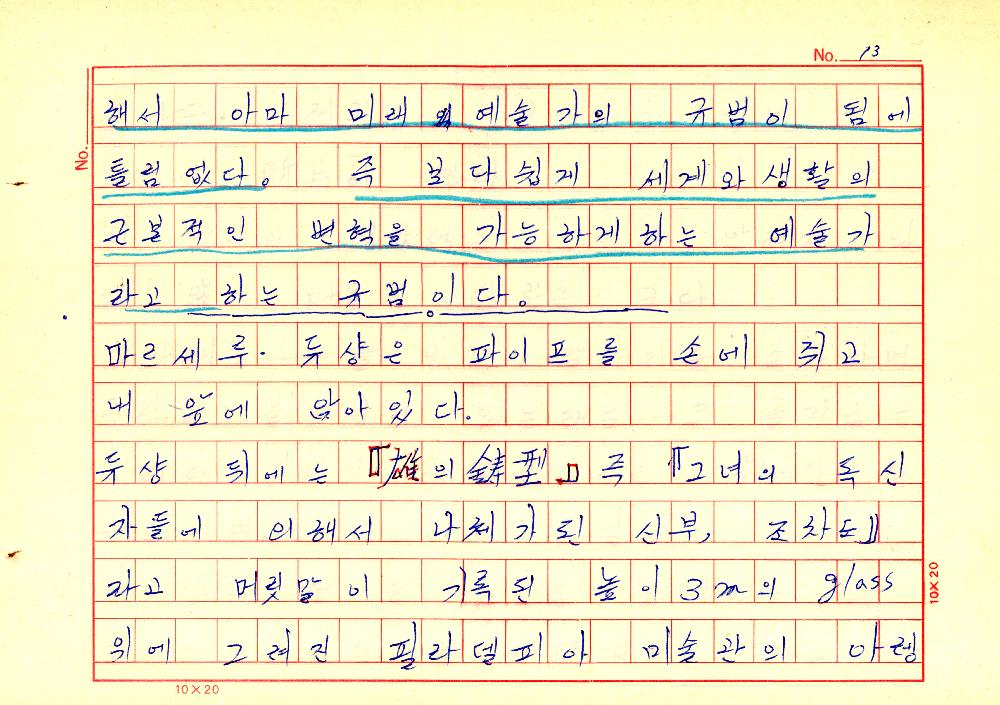 No. 13
No.
해서 아마 미래의 예술가의 규범이 됨에
틀림없다. 즉 보다쉽게 세계와생활의
근본적인 변혁을 가능하게하는 예술가
라고 하는 규범이다.
마르세루·듀샹은 파이프를 손에 쥐고
내 앞에 앉아있다.
듀샹 뒤에는 『雄의鋳型』즉 『그녀의 독신
자들에 의해서 나체가된 신부, 조차도』
라고 머릿말이 기록된 높이3m의 glass
위에 그려진 필라델피아 미술관의 아렝
10×20
10×20